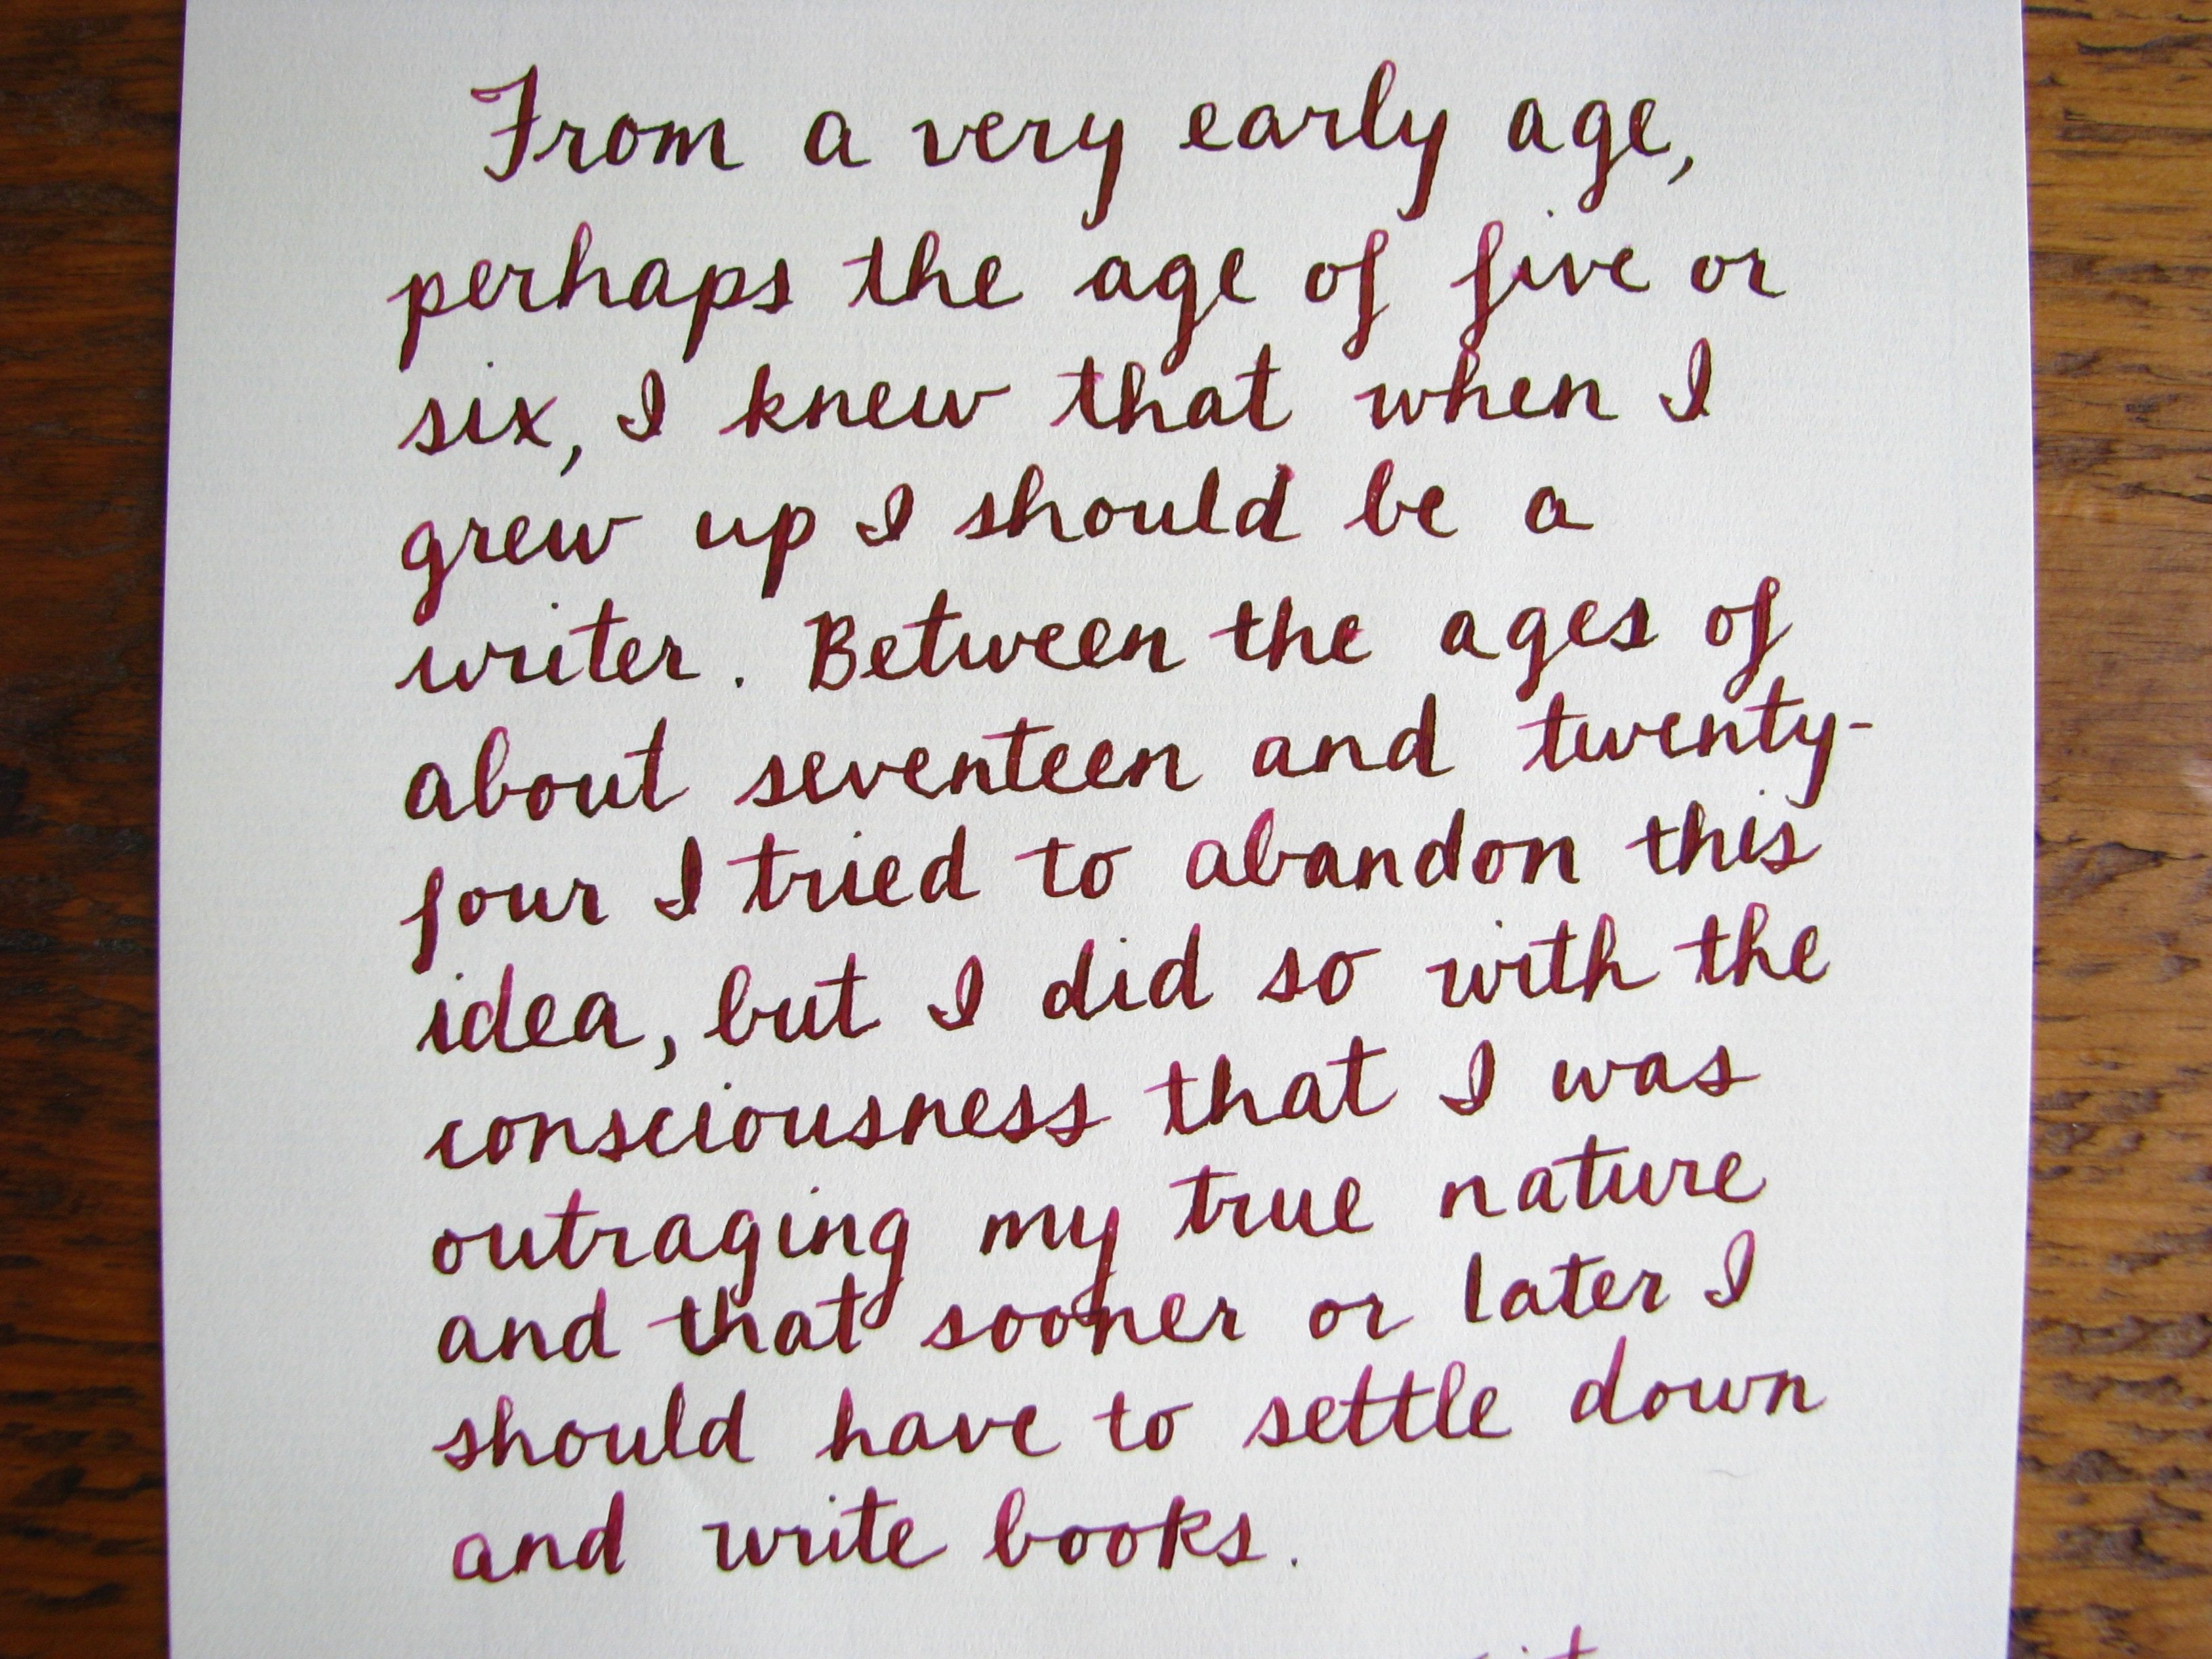 From a very early age,
perhaps the age of five or
six, I knew that when I
grew up I should be a
writer. Between the ages of
about seventeen and twenty-
four I tried to abandon this
idea, but I did so with the
consciousness that I was
outraging my true nature
and that sooner or later I
should have to settle down
and write books.